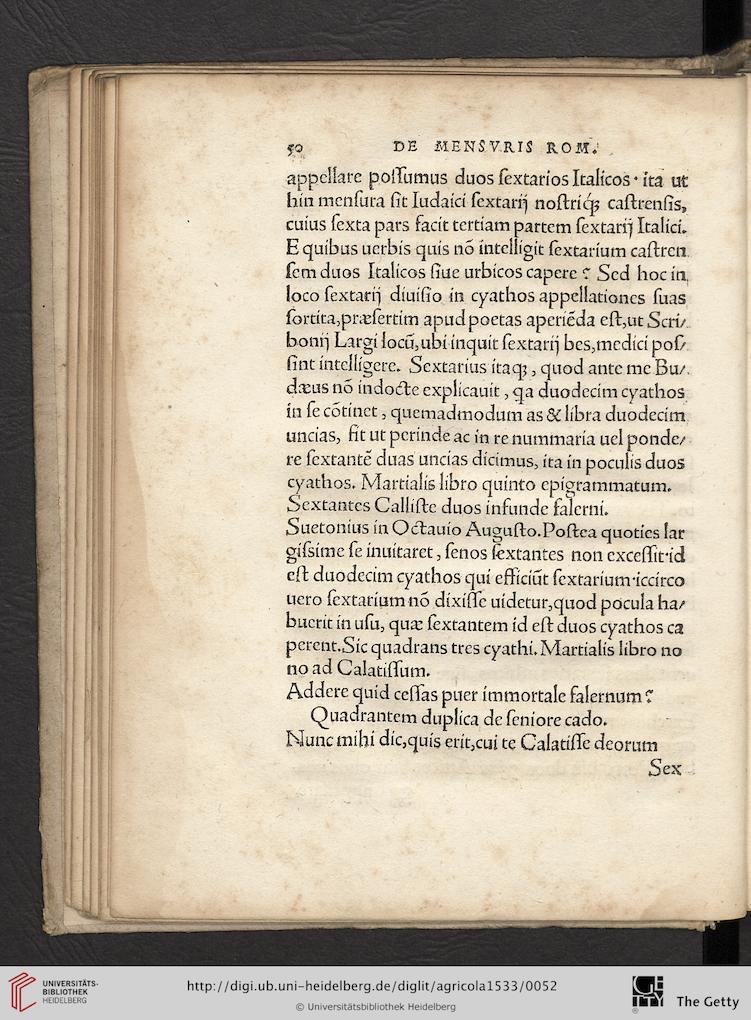 50 DE MENSVRIS ROM.
appellare possumus duos sextarios Italicos · ita ut
hin mensura sit Iudaici sextarij nostriq́ꝫ castrensis,
cuius sexta pars facit tertiam partem sextarij Italici.
E quibus uerbis quis nõ intelligit sextarium castren
sem duos Italicos siue urbicos capere? Sed hoc in
loco sextarij diuisio in cyathos appellationes suas
sortita,præsertim apud poetas aperiẽda est,ut Scri/
bonij Largi locũ,ubi inquit sextarij bes,medici pos/
sint intelligere. Sextarius itaqꝫ, quod ante me Bu/
dæus nõ indocte explicauit, qa duodecim cyathos
in se cõtinet, quemadmodum as & libra duodecim
uncias, fit ut perinde ac in re nummaria uel ponde/
re sextantẽ duas uncias dicimus, ita in poculis duos
cyathos. Martialis libro quinto epigrammatum.
Sextantes Calliste duos infunde falerni.
Suetonius in Octauio Augusto.Postea quoties lar
gissime se inuitaret, senos sextantes non excessit·id
est duodecim cyathos qui efficiũt sextarium·iccirco
uero sextarium nõ dixisse uidetur,quod pocula ha/
buerit in usu, quæ sextantem id est duos cyathos ca
perent.Sic quadrans tres cyathi. Martialis libro no
no ad Calatissum.
Addere quid cessas puer immortale falernum?
Quadrantem duplica de seniore cado.
Nunc mihi dic,quis erit,cui te Calatisse deorum
Sex
UNIVERSITÄTS-
BIBLIOTHEK
HEIDELBERG
http://digi.ub.uni-heidelberg.de/diglit/agricola1533/0052
© Universitätsbibliothek Heidelberg
GETTY
The Getty